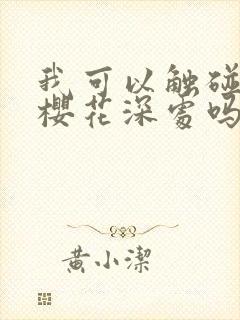 我可以触碰
樱花深处吗
黄小洁